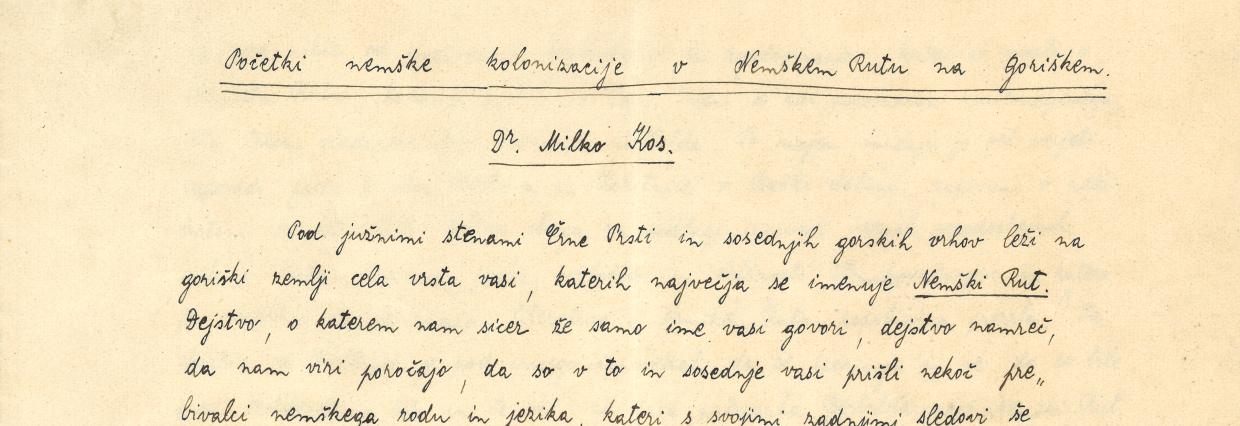 Početki nemške kolonizacije v Nemškem Rutu na Goriškem.
Dr. Milko Kos.
Pod južnimi stenami Črne Prsti in sosednjih gorskih vrhov leži na
goriški zemlji cela vrsta vasi, katerih največja se imenuje Nemški Rut.
Dejstvo, o katerem nam sicer že samo ime vasi govori, dejstvo namreč,
da nam viri poročajo, da so v to in sosednje vasi prišli nekoč pre„
bivalci nemškega rodu in jezika, kateri s svojimi zadnjimi sledovi še